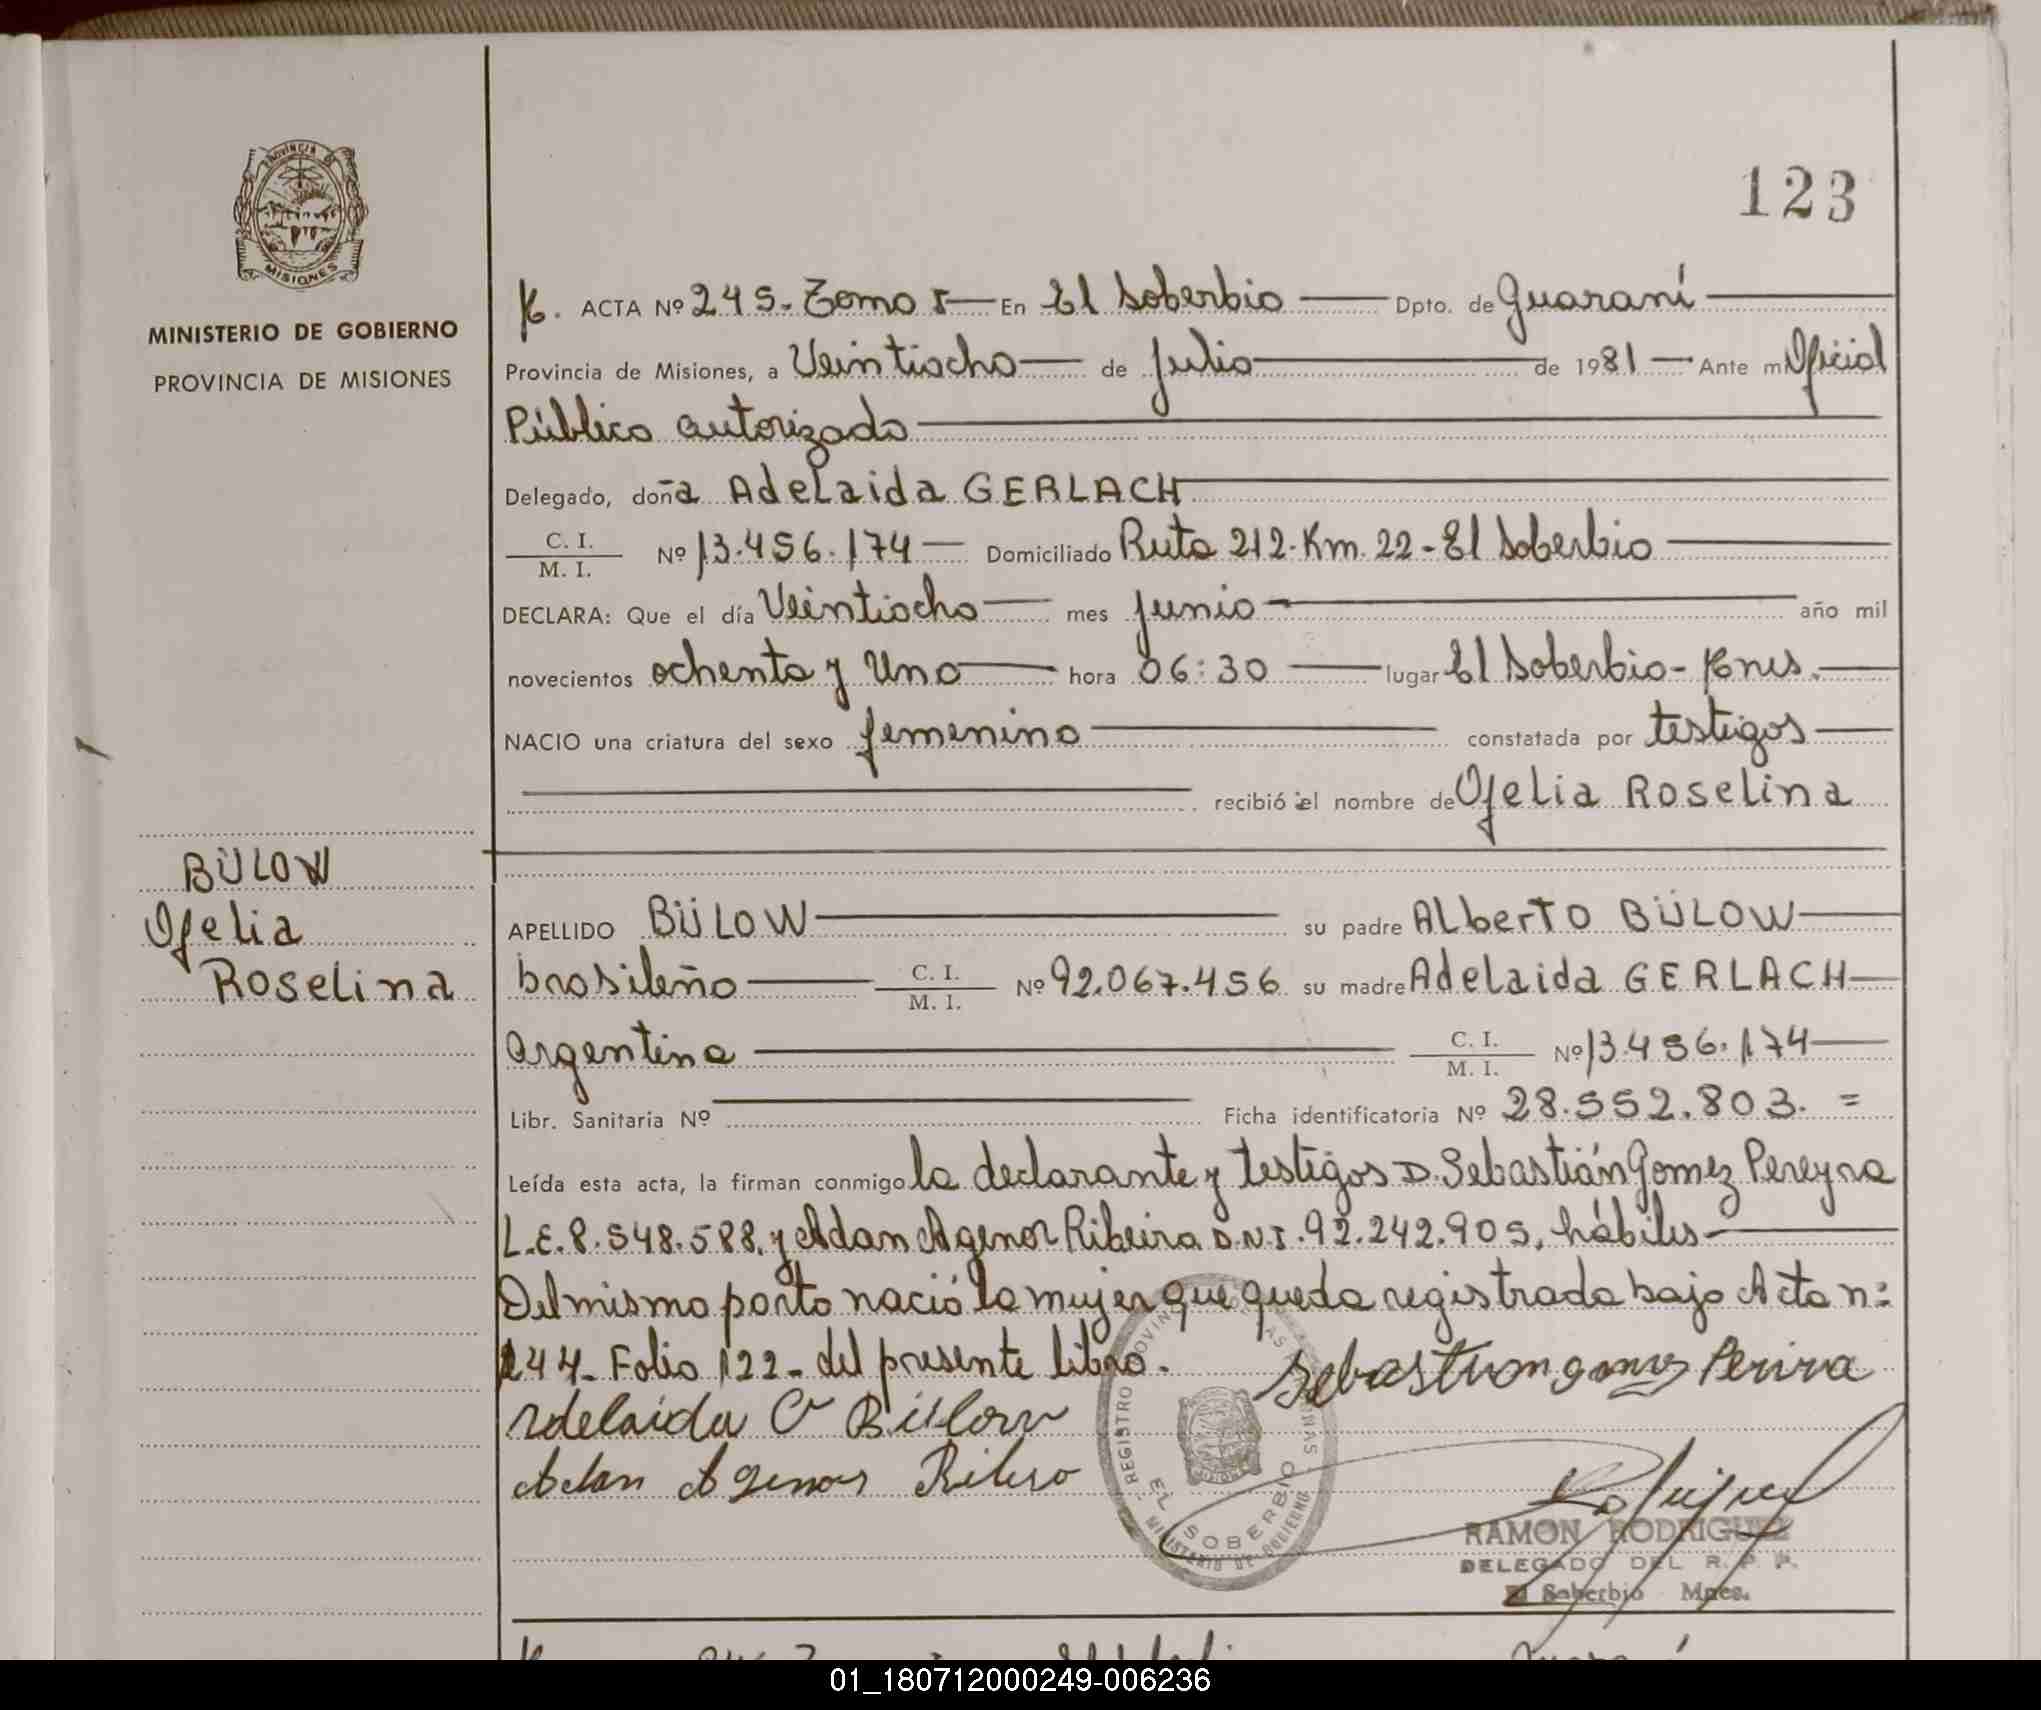 123
PROVINCIA DE
MISIONES
MINISTERIO DE GOBIERNO
PROVINCIA DE MISIONES
ACTA Nº 245. Tomo I En El Soberbio Dpto. de Guaraní
Provincia de Misiones, a Veintiocho de Julio de 1981 Ante mi Oficial
Público autorizado
Delegado, doña Adelaida GERLACH
C. I.
M. I.
Nº 13.456.174 Domiciliado Ruta 212. Km. 22 - El Soberbio
DECLARA: Que el día Veintiocho mes Junio año mil
novecientos ochenta y Uno hora 06:30 lugar El Soberbio - Mnes.
NACIO una criatura del sexo femenino constatada por testigos
recibió el nombre de Ofelia Roselina
BÜLOW
Ofelia
Roselina
APELLIDO BÜLOW su padre Alberto BÜLOW
brasileño C. I. M. I. Nº 92.067.456 su madre Adelaida GERLACH
argentina C. I. M. I. Nº 13.456.174
Libr. Sanitaria Nº Ficha identificatoria Nº 28.552.803. =
Leída esta acta, la firman conmigo la declarante y testigos D. Sebastián Gomez Pereyra
L.E. 8.548.588. y Adan Agenor Ribeira D.N.I. 92.242.905, hábiles
Del mismo parto nació la mujer que queda registrada bajo Acta nº
244 - Folio 122 - del presente libro.
Sebastian gomez Perira
Adelaida G Bülow
Adan Agenor Ribero
REGISTRO PROVINCIAL DE LAS PERSONAS
EL SOBERBIO
MINISTERIO DE GOBIERNO
RAMON RODRIGUEZ
DELEGADO DEL R. P. P.
El Soberbio Mnes.
01_180712000249-006236